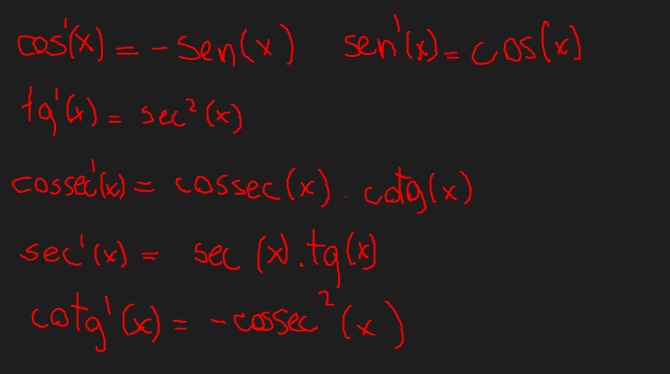 cos'(x) = -sen(x) sen'(x) = cos(x)
tg'(x) = sec²(x)
cossec'(x) = cossec(x) . cotg(x)
sec'(x) = sec(x).tg(x)
cotg'(x) = -cossec²(x)